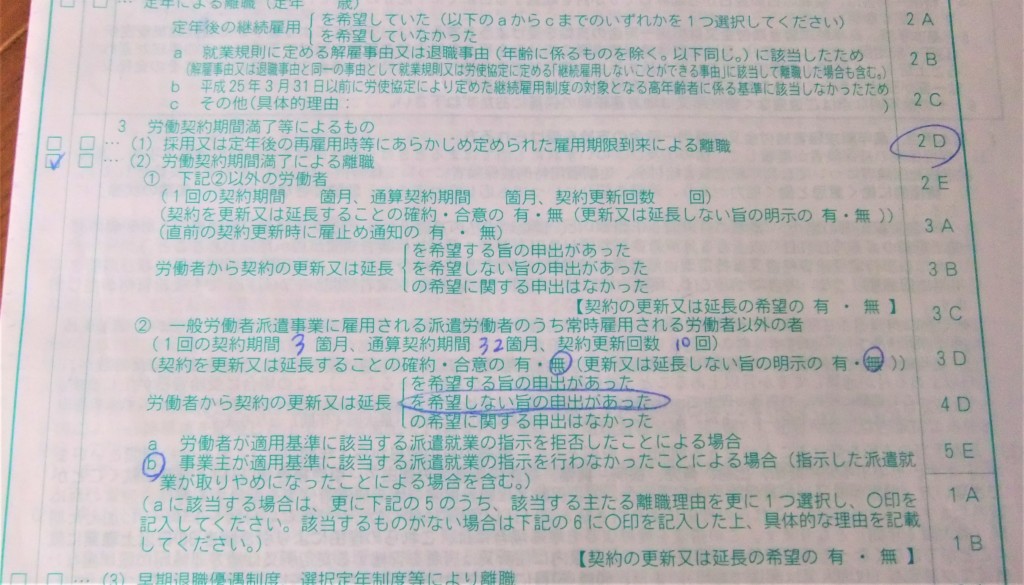 □ □ … 定年による離職（定年　　歳）
定年後の継続雇用 { を希望していた（以下のａからｃまでのいずれかを１つ選択してください）
を希望していなかった
２Ａ
ａ　就業規則に定める解雇事由又は退職事由（年齢に係るものを除く。以下同じ。）に該当したため
２Ｂ
（解雇事由又は退職事由と同一の事由として就業規則又は労使協定に定める「継続雇用しないことができる事由」に該当して離職した場合も含む。）
ｂ　平成25年３月31日以前に労使協定により定めた継続雇用制度の対象となる高年齢者に係る基準に該当しなかったため
ｃ　その他（具体的理由：　　　）
２Ｃ
３　労働契約期間満了等によるもの
□ □ …（１）採用又は定年後の再雇用時等にあらかじめ定められた雇用期限到来による離職
２Ｄ
☑ □ …（２）労働契約期間満了による離職
①　下記②以外の労働者
２Ｅ
（１回の契約期間　　箇月、通算契約期間　　箇月、契約更新回数　　回）
（契約を更新又は延長することの確約・合意の 有・無（更新又は延長しない旨の明示の 有・無 ））
３Ａ
（直前の契約更新時に雇止め通知の 有 ・ 無）
を希望する旨の申出があった
労働者から契約の更新又は延長 { を希望しない旨の申出があった
３Ｂ
の希望に関する申出はなかった
【契約の更新又は延長の希望の 有 ・ 無 】
３Ｃ
②　一般労働者派遣事業に雇用される派遣労働者のうち常時雇用される労働者以外の者
（１回の契約期間 3 箇月、通算契約期間 32箇月、契約更新回数 10回）
（契約を更新又は延長することの確約・合意の 有・無（更新又は延長しない旨の明示の 有・無 ））
３Ｄ
を希望する旨の申出があった
労働者から契約の更新又は延長 { を希望しない旨の申出があった
４Ｄ
の希望に関する申出はなかった
ａ　労働者が適用基準に該当する派遣就業の指示を拒否したことによる場合
５Ｅ
ｂ　事業主が適用基準に該当する派遣就業の指示を行わなかったことによる場合（指示した派遣就
業が取りやめになったことによる場合を含む。）
（ａに該当する場合は、更に下記の５のうち、該当する主たる離職理由を更に１つ選択し、〇印を
１Ａ
記入してください。該当するものがない場合は下記の６に〇印を記入した上、具体的な理由を記載
してください。）
１Ｂ
【契約の更新又は延長の希望の 有 ・ 無 】
□ □ …（３）早期退職優遇制度、選択定年制度等により離職